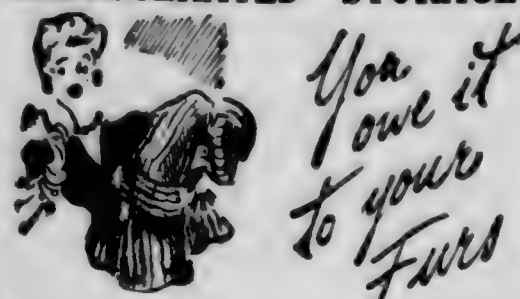 You
owe it
to your
Furs